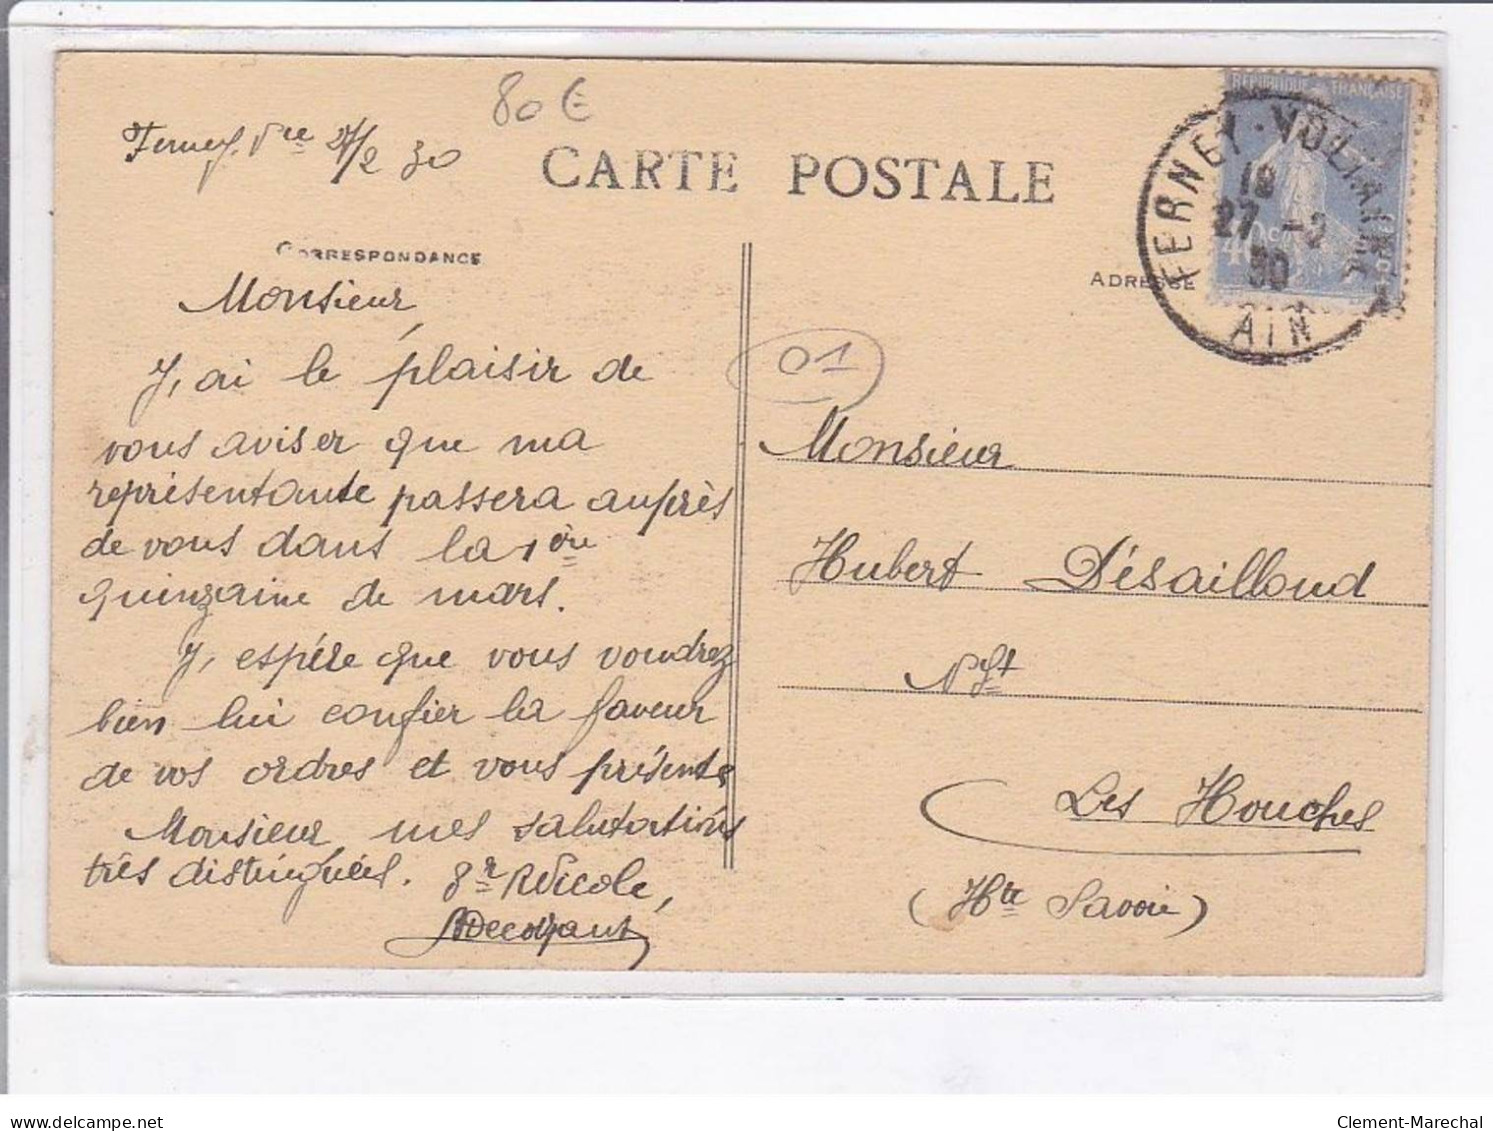 80 €
Ferney-Vre 27/2 30
CARTE POSTALE
RÉPUBLIQUE FRANÇAISE
FERNEY-VOLTAIRE
18
27 -2
30
AIN
40c
CORRESPONDANCE
ADRESSE
Monsieur,
J,ai le plaisir de
vous aviser que ma
représentante passera auprès
de vous dans la 1ère
quinzaine de mars.
J, espére que vous voudrez
bien lui confier la faveur
de vos ordres et vous présente
Monsieur mes salutations
très distinguées.
01
Monsieur
Hubert Désailloud
Nt
Les Houches
(Hte Savoie)
delcampe.net
Clement-Marechal